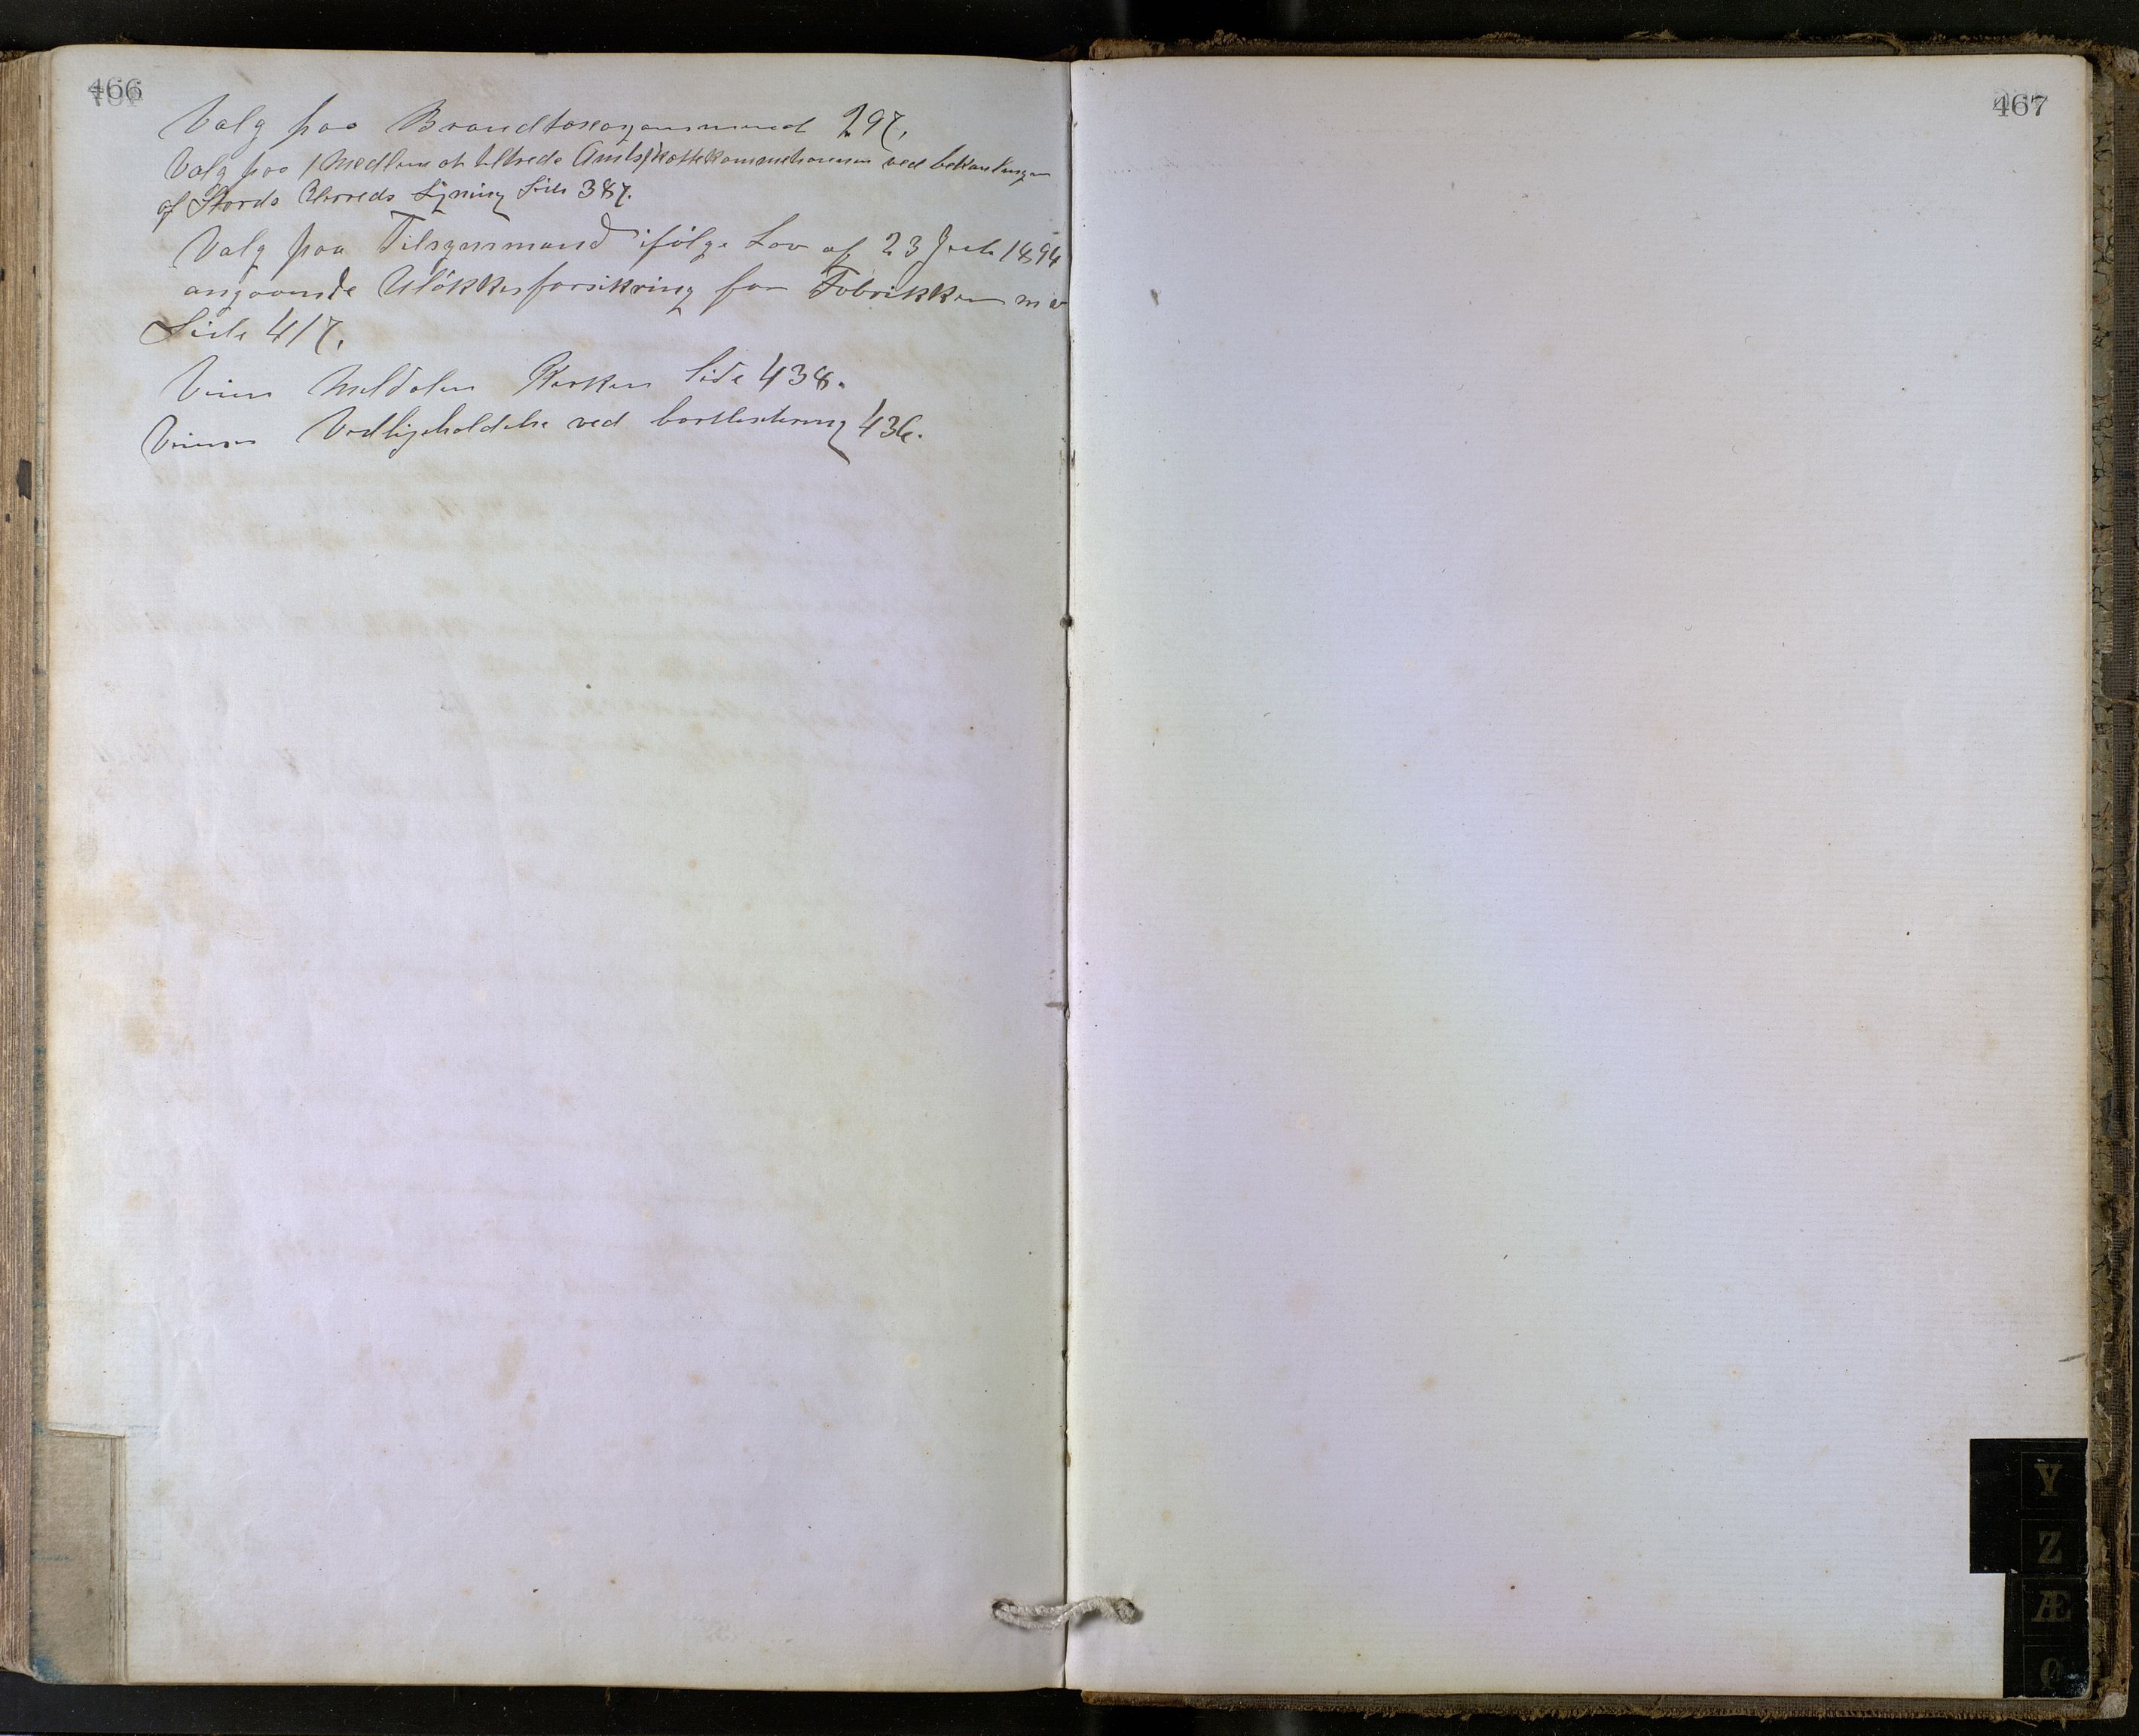 466
Valg paa Brandtaxasjonsmænd 297.
Valg paa 1 Medlem at tiltrede Amtsskattekommisionen ved behandlingen
af Stords Herreds Ligning Side 387.
Valg paa Tilsynsmænd ifølge Lov af 23 Juli 1894
angaaende Ulökkesforsikring for Fabrikker m v
Side 417.
Veien Meldalen Kirken Side 438.
Veienes Vedligeholdelse ved bortlicitering 436.
467
Y
Z
Æ